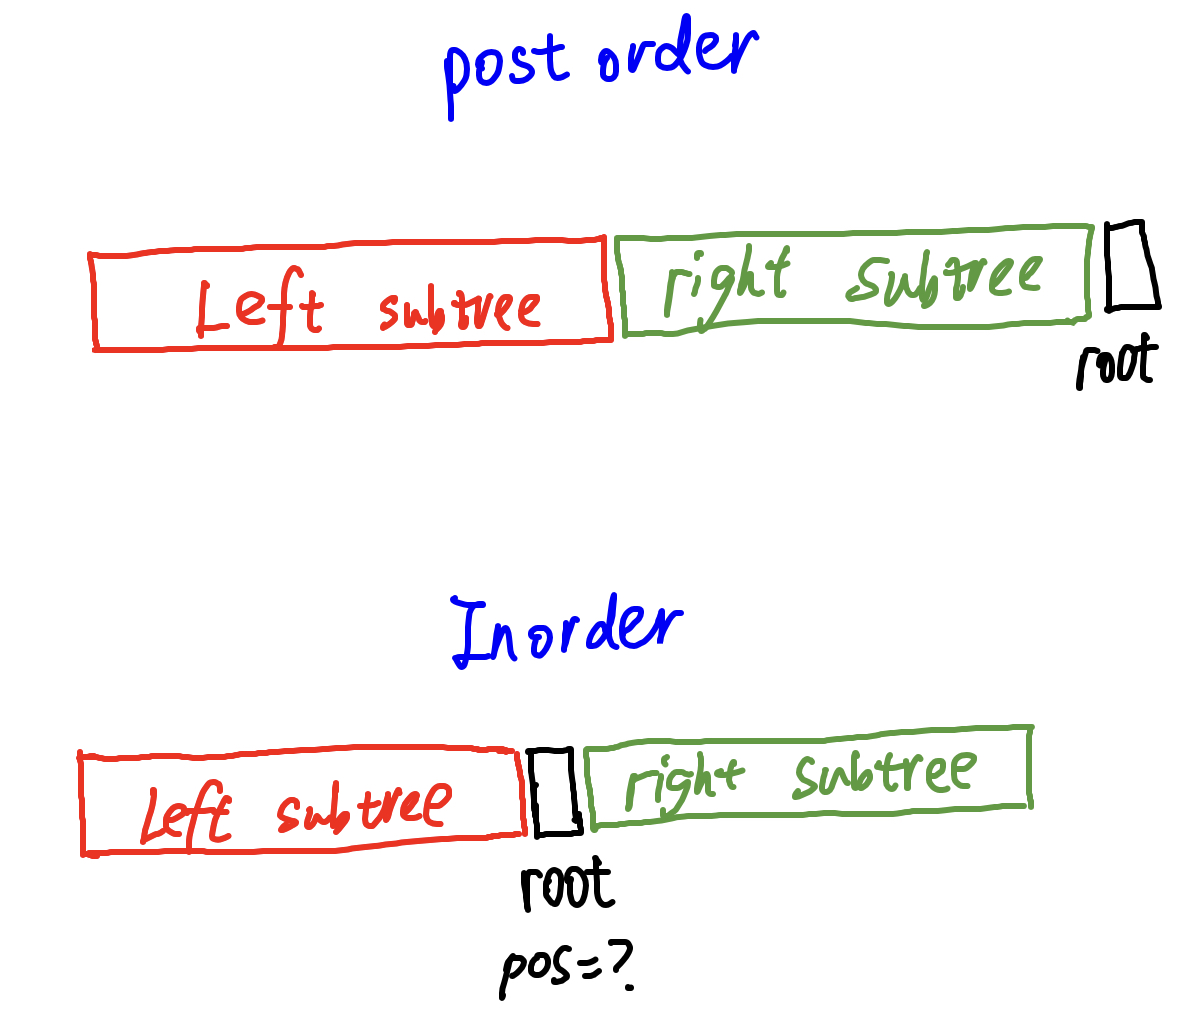 post order
Left subtree right subtree
root
Inorder
Left subtree right subtree
root
pos=?